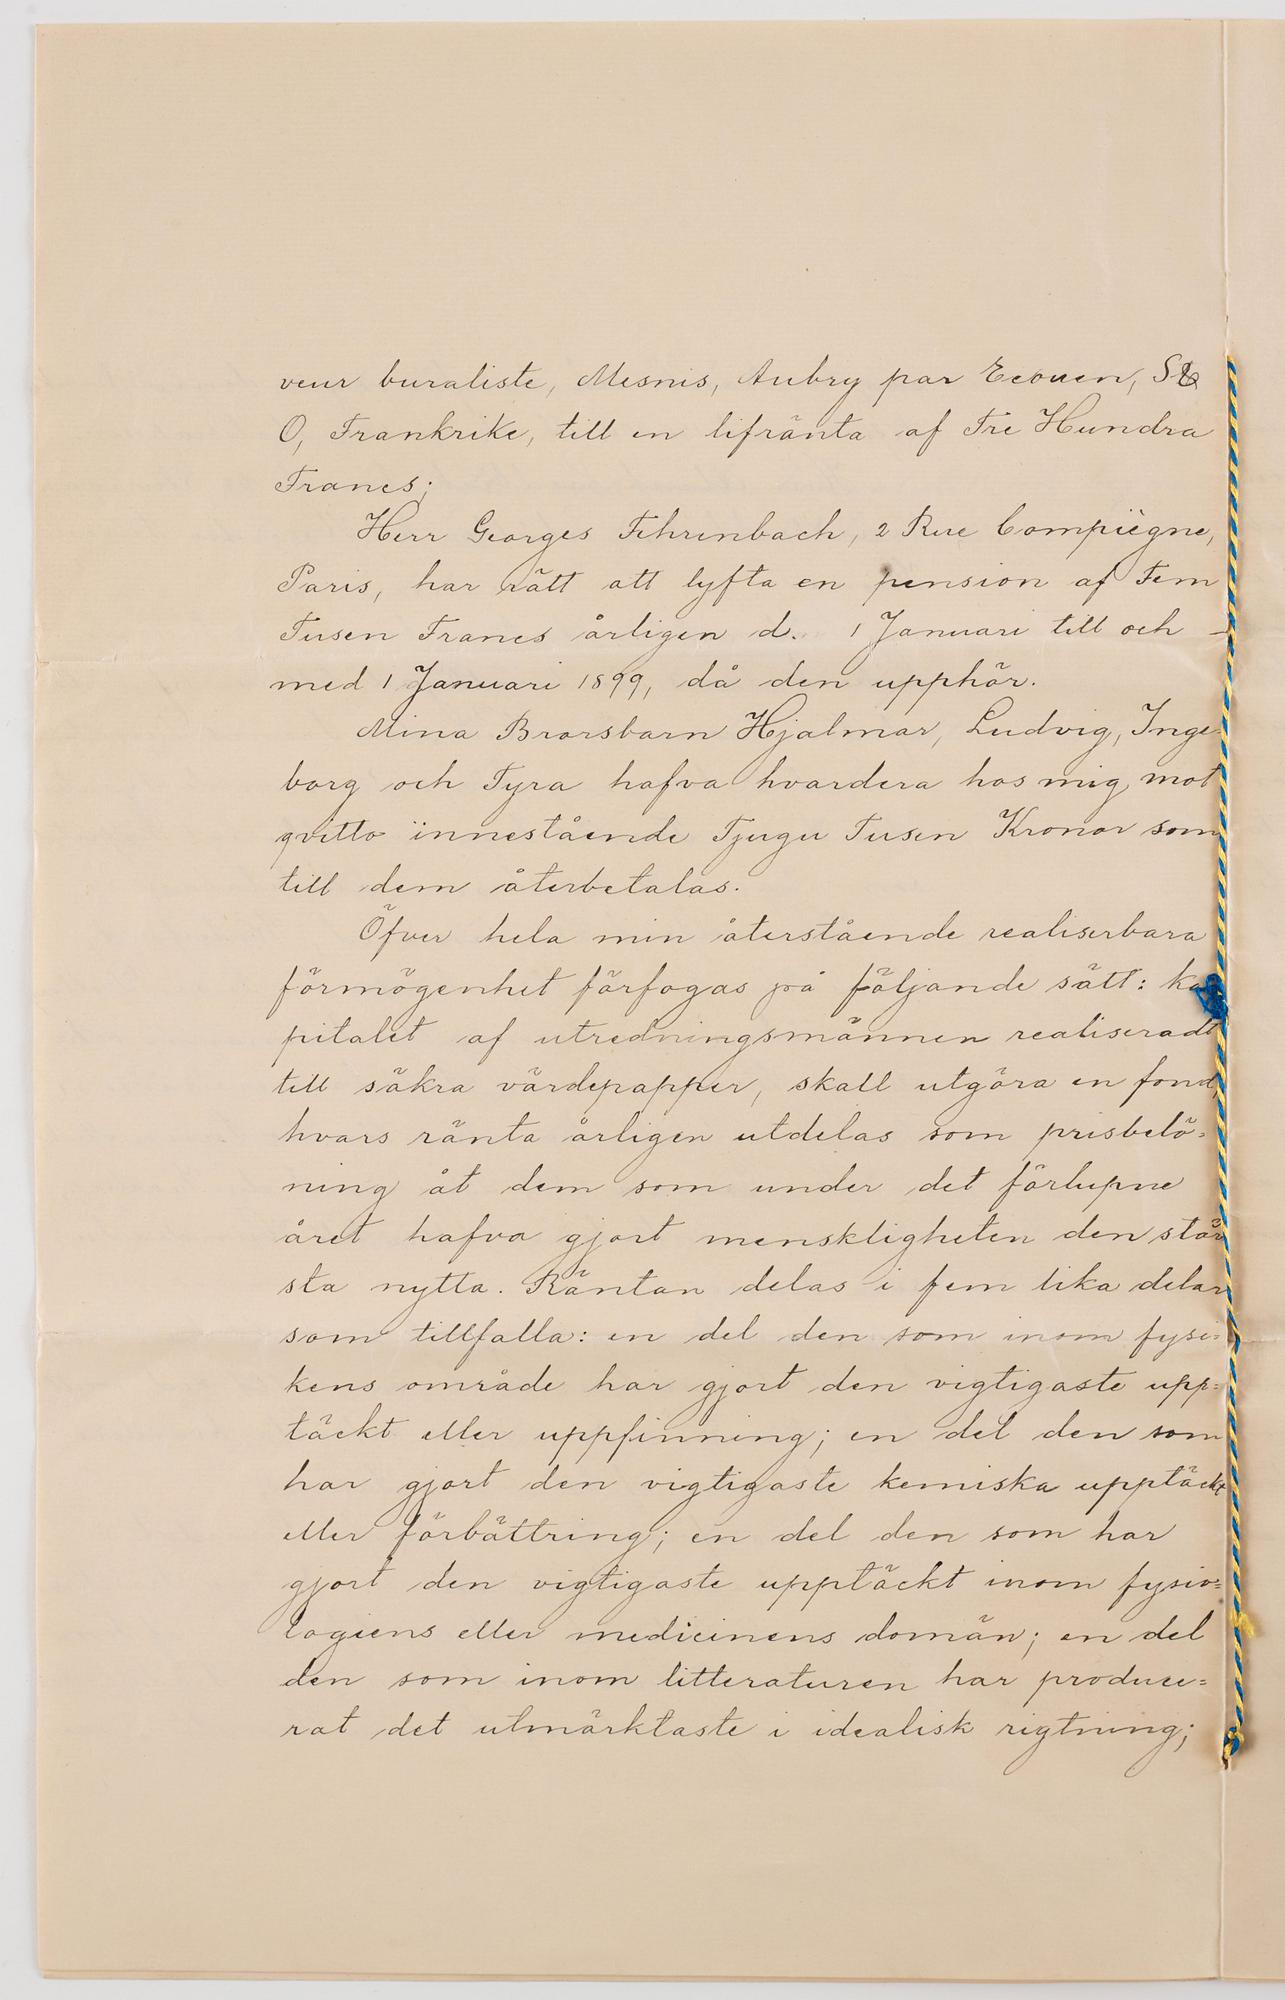 veur buraliste, Mesnis, Aubry par Ecouen, S &
O, Frankrike, till en lifränta af Tre Hundra
Francs;
Herr Georges Fehrenbach, 2 Rue Compiègne,
Paris, har rätt att lyfta en pension af Fem
Tusen Francs årligen d. 1 Januari till och -
med 1 Januari 1899, då den upphör.
Mina Brorsbarn Hjalmar, Ludvig, Inge
borg och Tyra hafva hvardera hos mig mot
qvitto innestående Tjugu Tusen Kronor som
till dem återbetalas.
Öfver hela min återstående realiserbara
förmögenhet förfogas på följande sätt: ka
pitalet af utredningsmännen realiseradt
till säkra värdepapper, skall utgöra en fond,
hvars ränta årligen utdelas som prisbelö=
ning åt dem som under det förlupne
året hafva gjort menskligheten den stör
sta nytta. Räntan delas i fem lika delar
som tillfalla: en del den som inom fysi=
kens område har gjort den vigtigaste upp=
täckt eller uppfinning; en del den som
har gjort den vigtigaste kemiska upptäckt
eller förbättring; en del den som har
gjort den vigtigaste upptäckt inom fysio=
logiens eller medicinens domän; en del
den som inom litteraturen har produce=
rat det utmärktaste i idealisk rigtning;